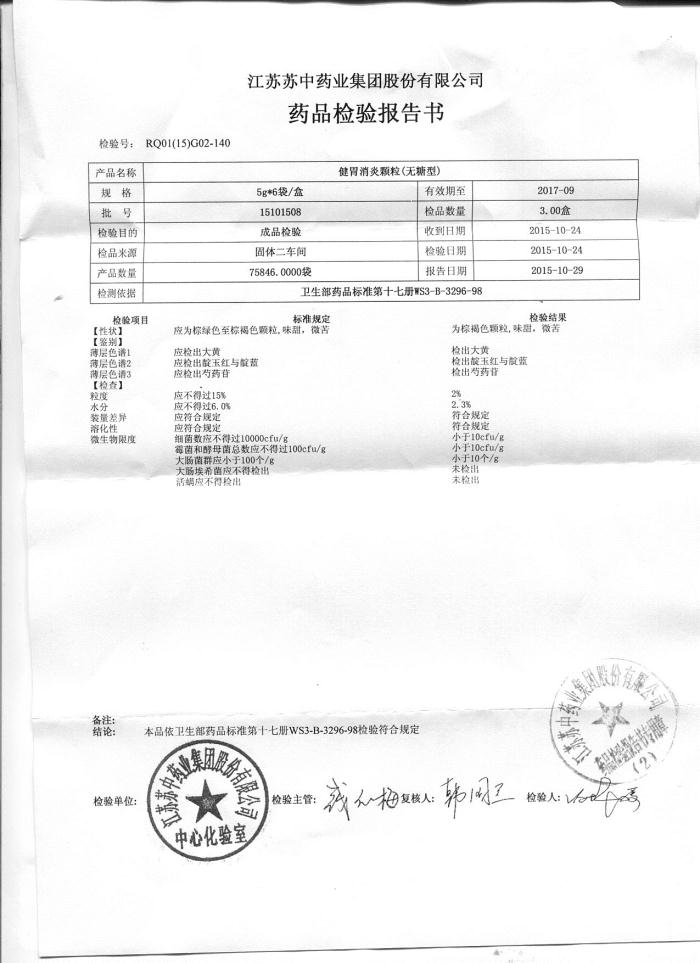 江苏苏中药业集团股份有限公司
药品检验报告书
检验号: RQ01(15)G02-140
产品名称 健胃消炎颗粒(无糖型)
规 格 5g*6袋/盒 有效期至 2017-09
批 号 15101508 检品数量 3.00盒
检验目的 成品检验 收到日期 2015-10-24
检品来源 固体二车间 检验日期 2015-10-24
产品数量 75846.0000袋 报告日期 2015-10-29
检测依据 卫生部药品标准第十七册WS3-B-3296-98
检验项目 标准规定 检验结果
【性状】 应为棕绿色至棕褐色颗粒,味甜，微苦 为棕褐色颗粒,味甜，微苦
【鉴别】
薄层色谱1 应检出大黄 检出大黄
薄层色谱2 应检出靛玉红与靛蓝 检出靛玉红与靛蓝
薄层色谱3 应检出芍药苷 检出芍药苷
【检查】
粒度 应不得过15% 2%
水分 应不得过6.0% 2.3%
装量差异 应符合规定 符合规定
溶化性 应符合规定 符合规定
微生物限度 细菌数应不得过10000cfu/g 小于10cfu/g
霉菌和酵母菌总数应不得过100cfu/g 小于10cfu/g
大肠菌群应小于100个/g 小于10个/g
大肠埃希菌应不得检出 未检出
活螨应不得检出 未检出
备注:
结论: 本品依卫生部药品标准第十七册WS3-B-3296-98检验符合规定
江苏苏中药业集团股份有限公司
药品检验报告书专用章
(2)
检验单位: 检验主管: 复核人: 韩 检验人:
江苏苏中药业集团股份有限公司
中心化验室